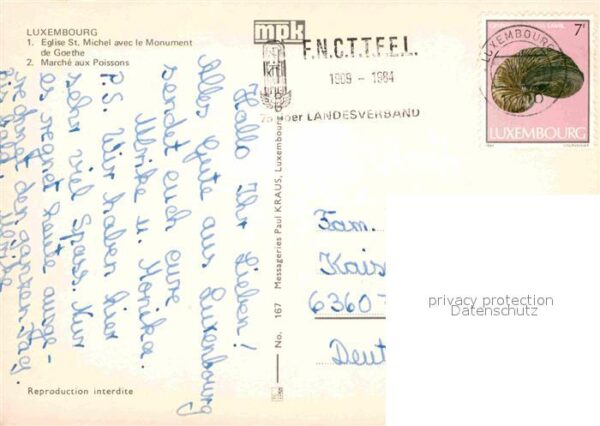 LUXEMBOURG
1. Eglise St. Michel avec le Monument
de Goethe
2. Marché aux Poissons
mpk
F.N.C.T.T.F.E.L.
1909 - 1984
LANDESVERBAND
LUXEMBOURG
7F
LUXEMBOURG
Hallo Ihr Lieben!
Alles Gute aus Luxenbourg
sendet euch eure
Ulrike u. Monika.
P.S. Wir haben hier
sehr viel Spass. Nur
es regnet heute
den ganzen Tag.
Bis bald Ulrike
No. 167 Messageries Paul KRAUS, Luxembourg
Fam.
Kais
6360-
Deut
privacy protection
Datenschutz
Reproduction interdite